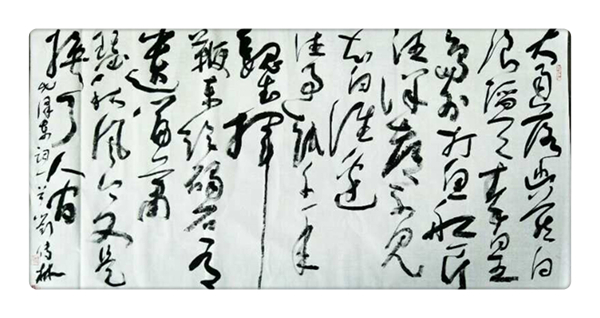 大雨落幽燕白
浪滔天秦皇
岛外打鱼船一片
汪洋都不见
知向谁边
往事越千年
魏武挥
鞭东临碣石有
遗篇萧
瑟秋风今又是
换了人间
毛泽东词一首 劉